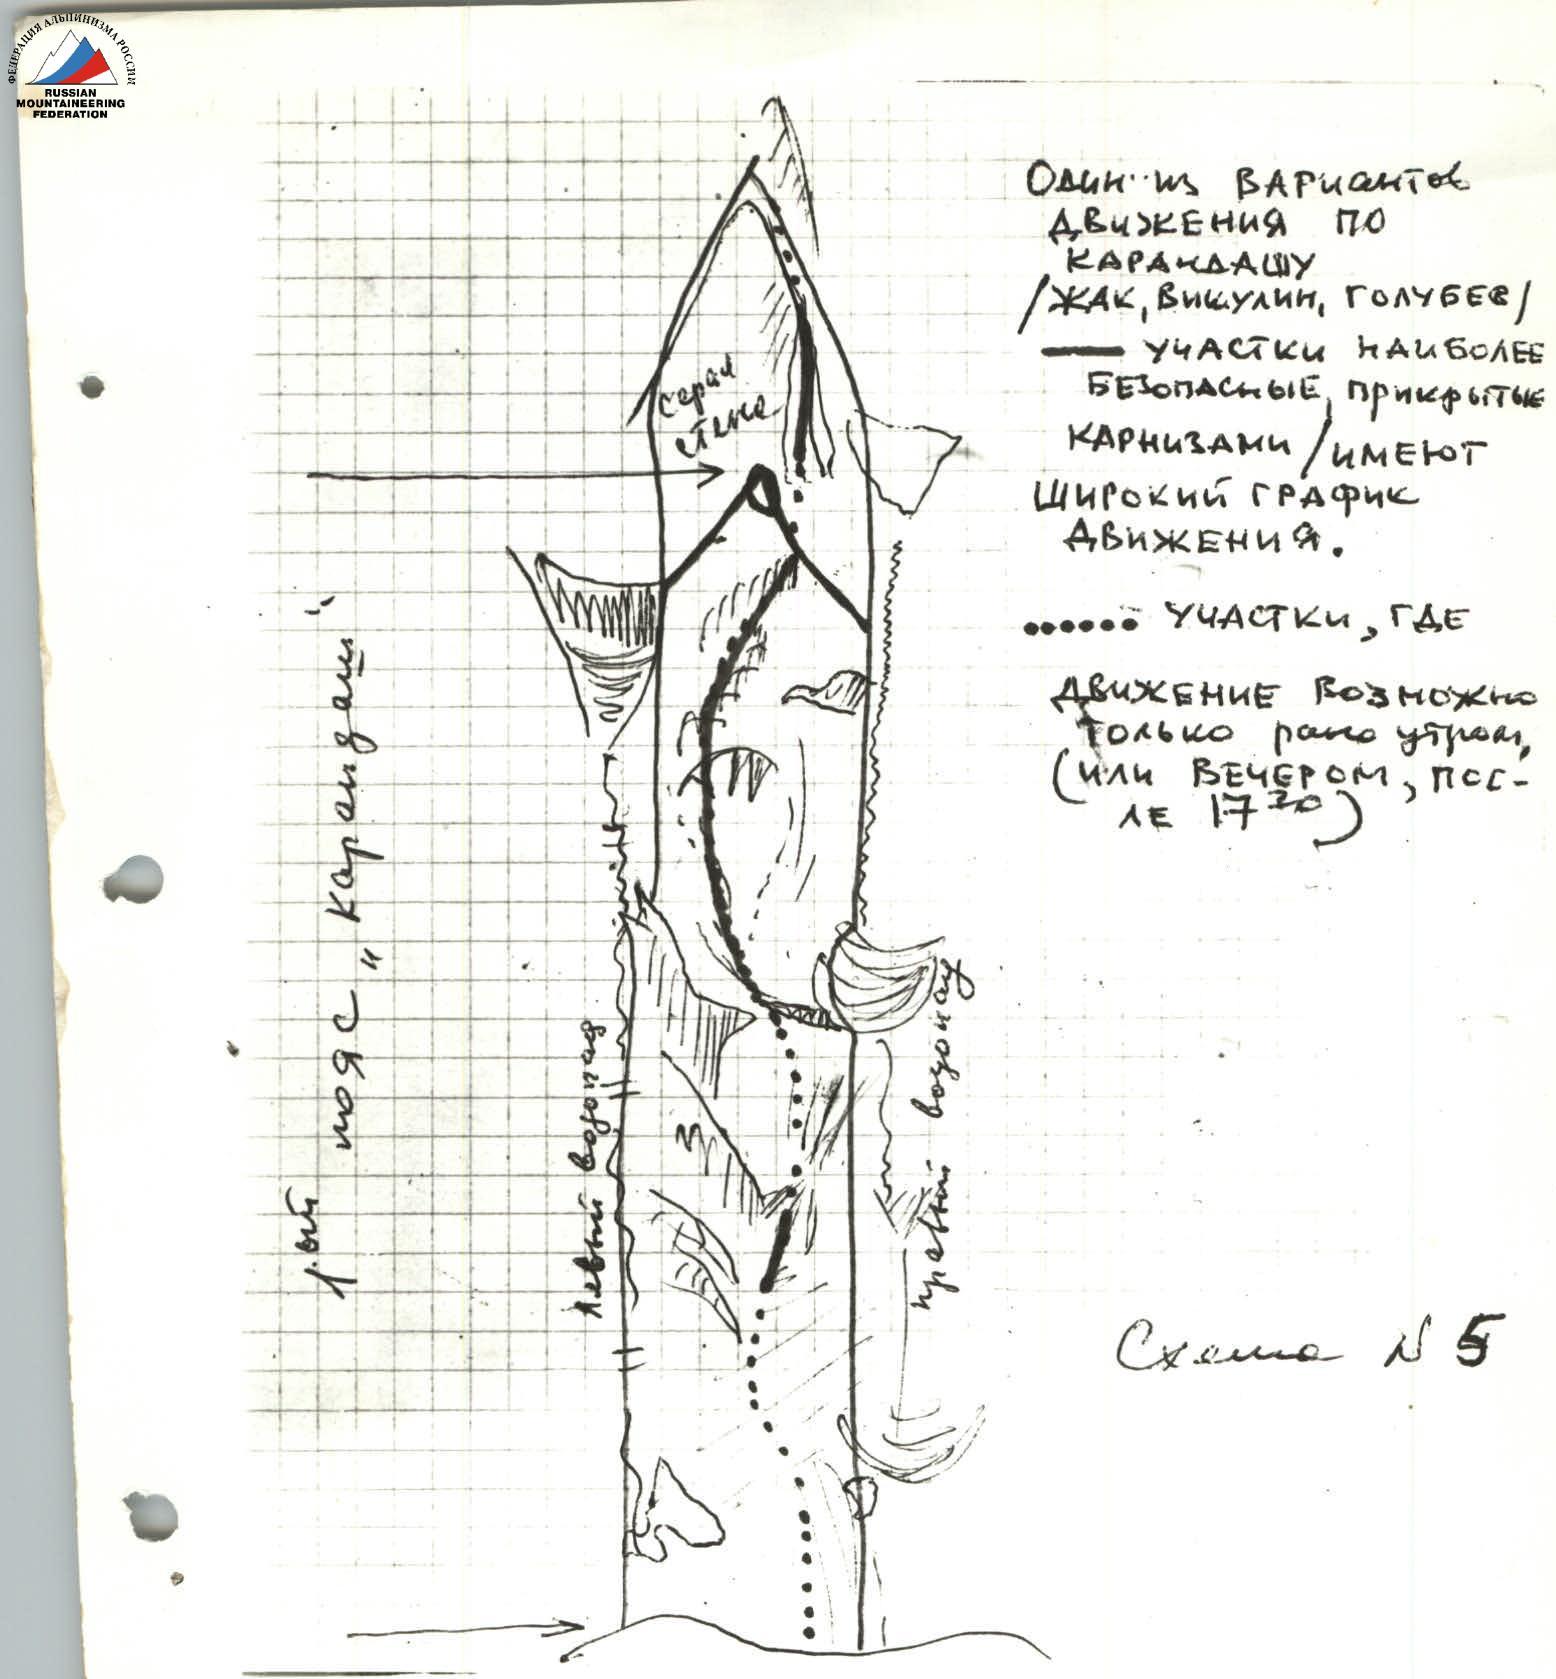 ФЕДЕРАЦИЯ АЛЬПИНИЗМА РОССИИ
RUSSIAN
MOUNTAINEERING
FEDERATION
Один из вариантов
движения по
карандашу
/Жак, Викулин, Голубев/
участки наиболее
безопасные, прикрытые
карнизами /имеют
широкий график
движения.
участки, где
движение возможно
только рано утром,
(или вечером, пос-
ле 17 30)
серая
стена
1-ый пояс "Карандаш"
Левый водопад
правый водопад
Схема N 5